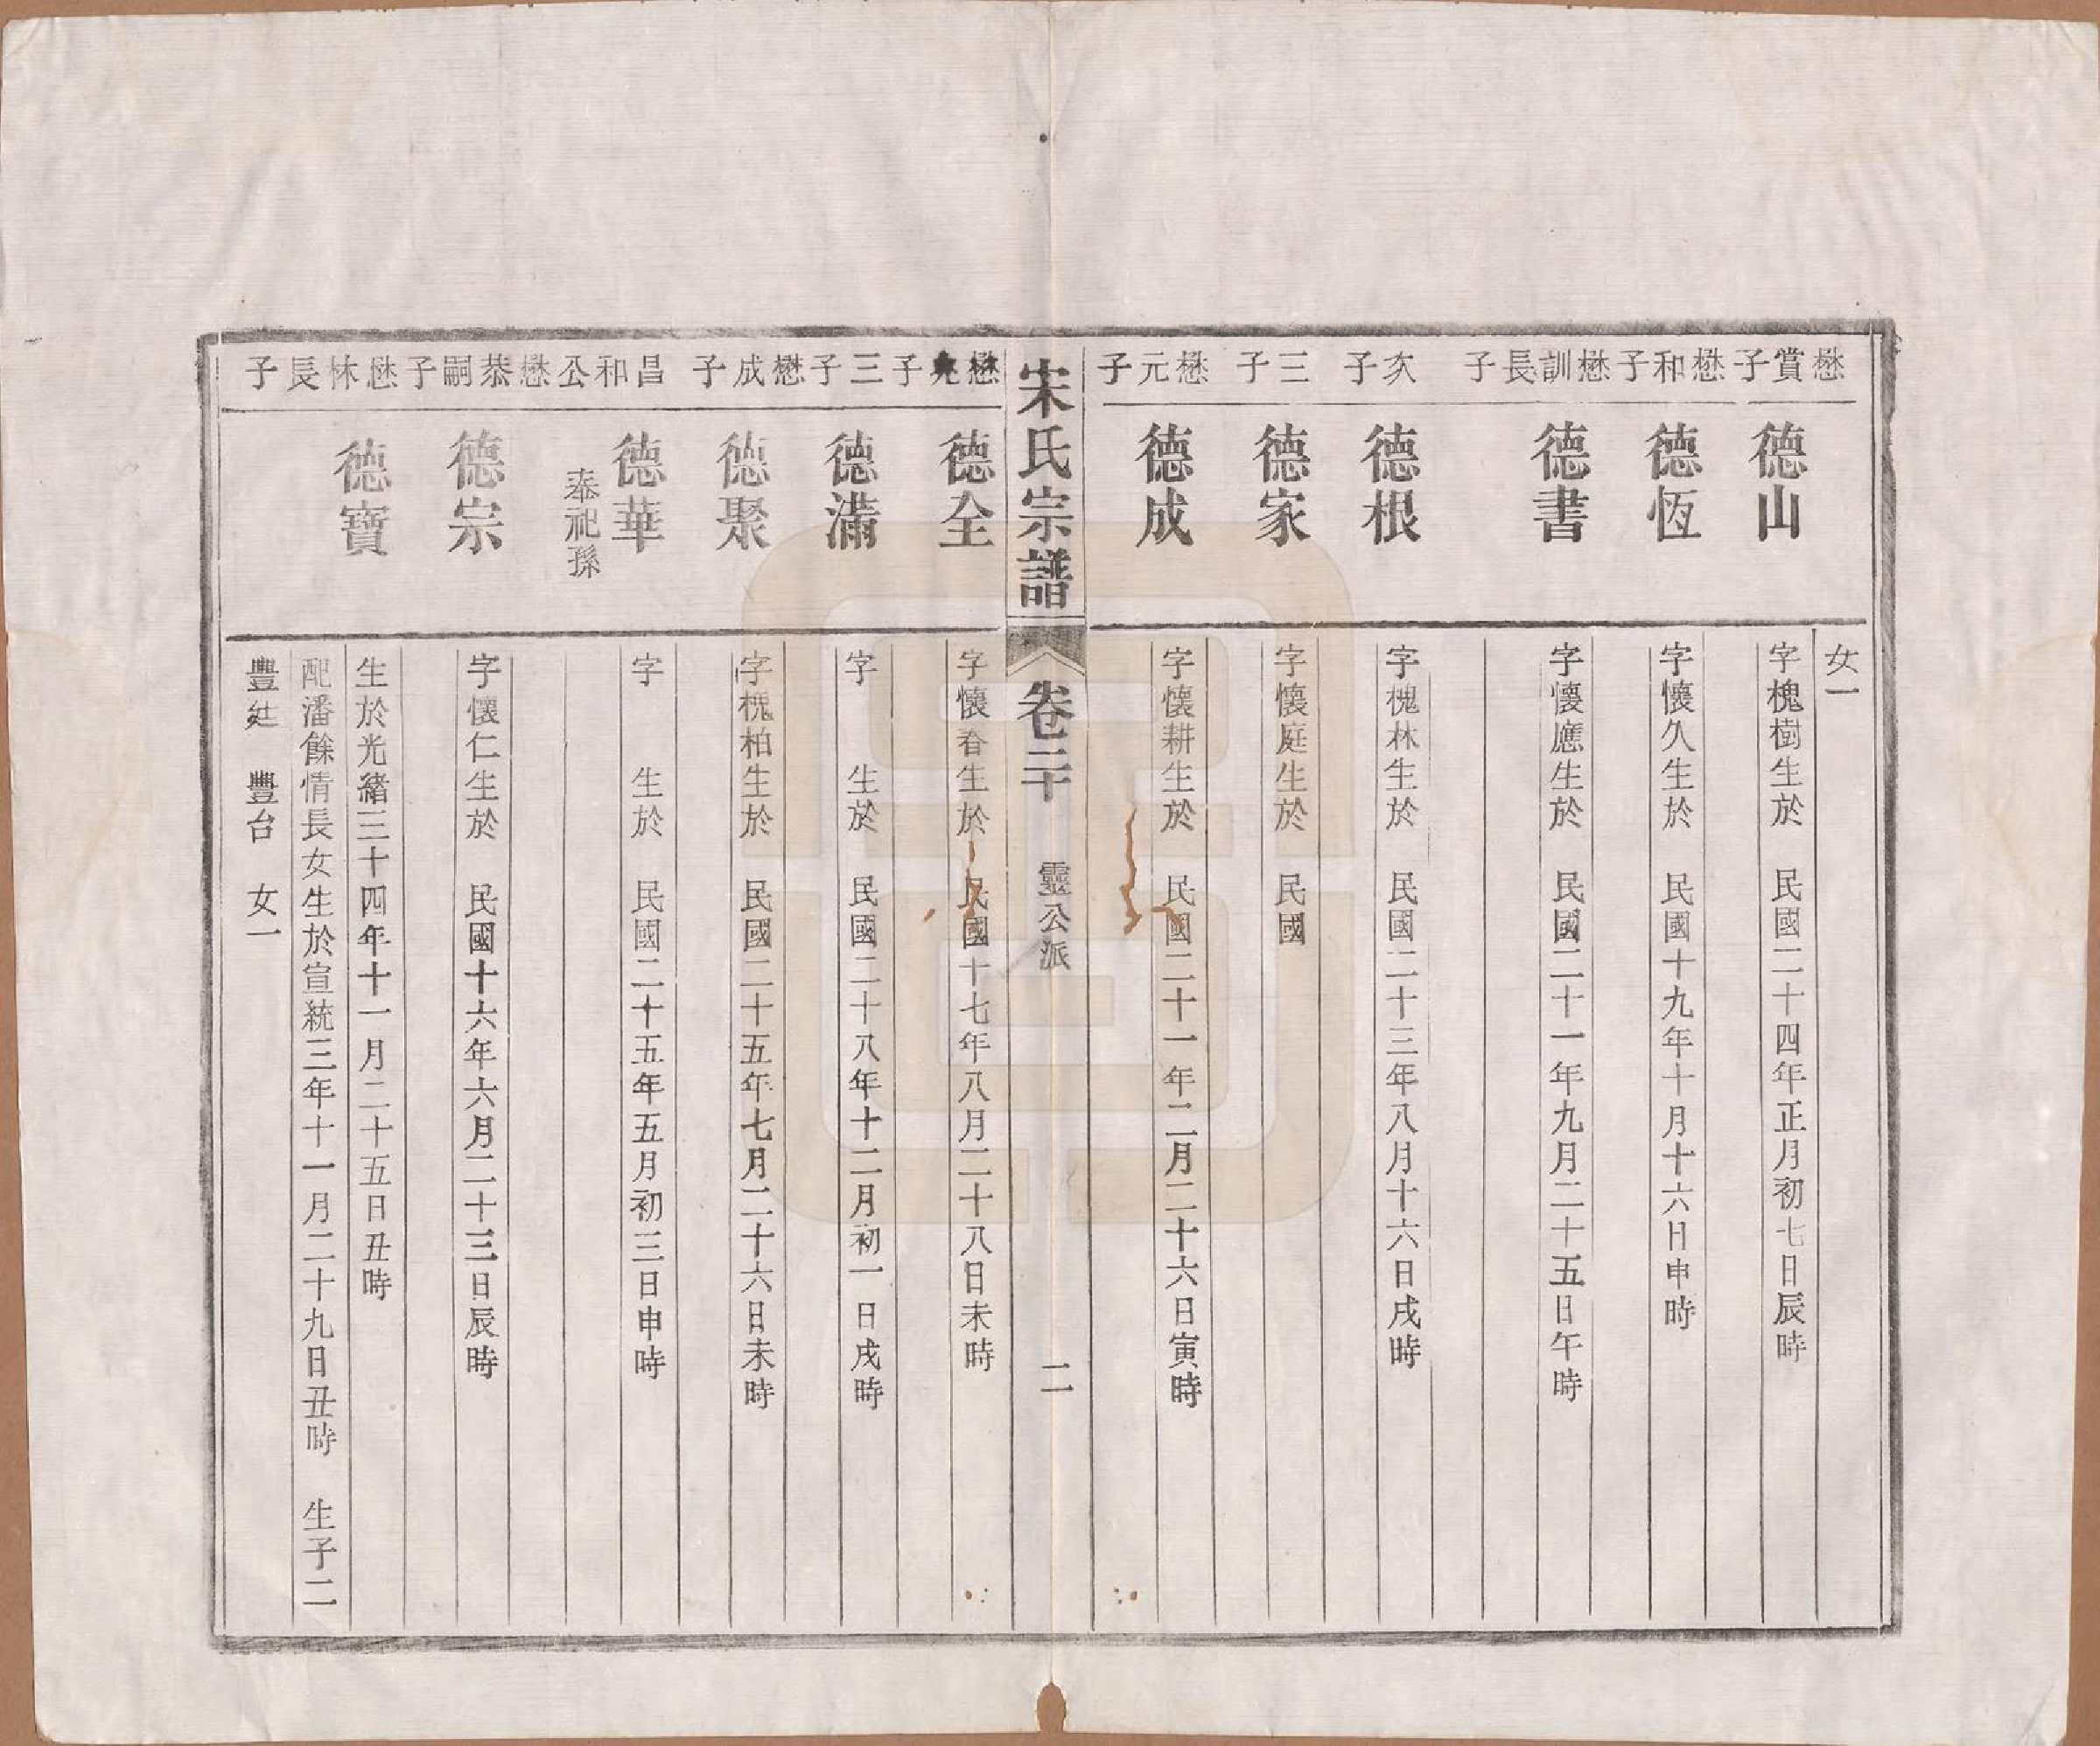 女一
懋賞子
德山
字槐樹生於　民國二十四年正月初七日辰時
懋和子
德恆
字懷久生於　民國十九年十月十六日申時
懋訓長子
德書
字懷應生於　民國二十一年九月二十五日午時
次子
德根
字槐林生於　民國二十三年八月十六日戌時
三子
德家
字懷庭生於　民國
懋元子
德成
字懷耕生於　民國二十一年二月二十六日寅時
宋氏宗譜
卷二十　靈公派
二
懋子
德全
字懷春生於　民國十七年八月二十八日未時
三子
德滿
字　　生於　民國二十八年十二月初一日戌時
懋成子
德聚
字槐柏生於　民國二十五年七月二十六日未時
昌和公
德華
奉祀孫
字　　生於　民國二十五年五月初三日申時
懋恭嗣子
德宗
字懷仁生於　民國十六年六月二十三日辰時
懋林長子
德寶
生於光緒三十四年十一月二十五日丑時
配潘餘情長女生於宣統三年十一月二十九日丑時　生子二
豐廷　豐台　女一